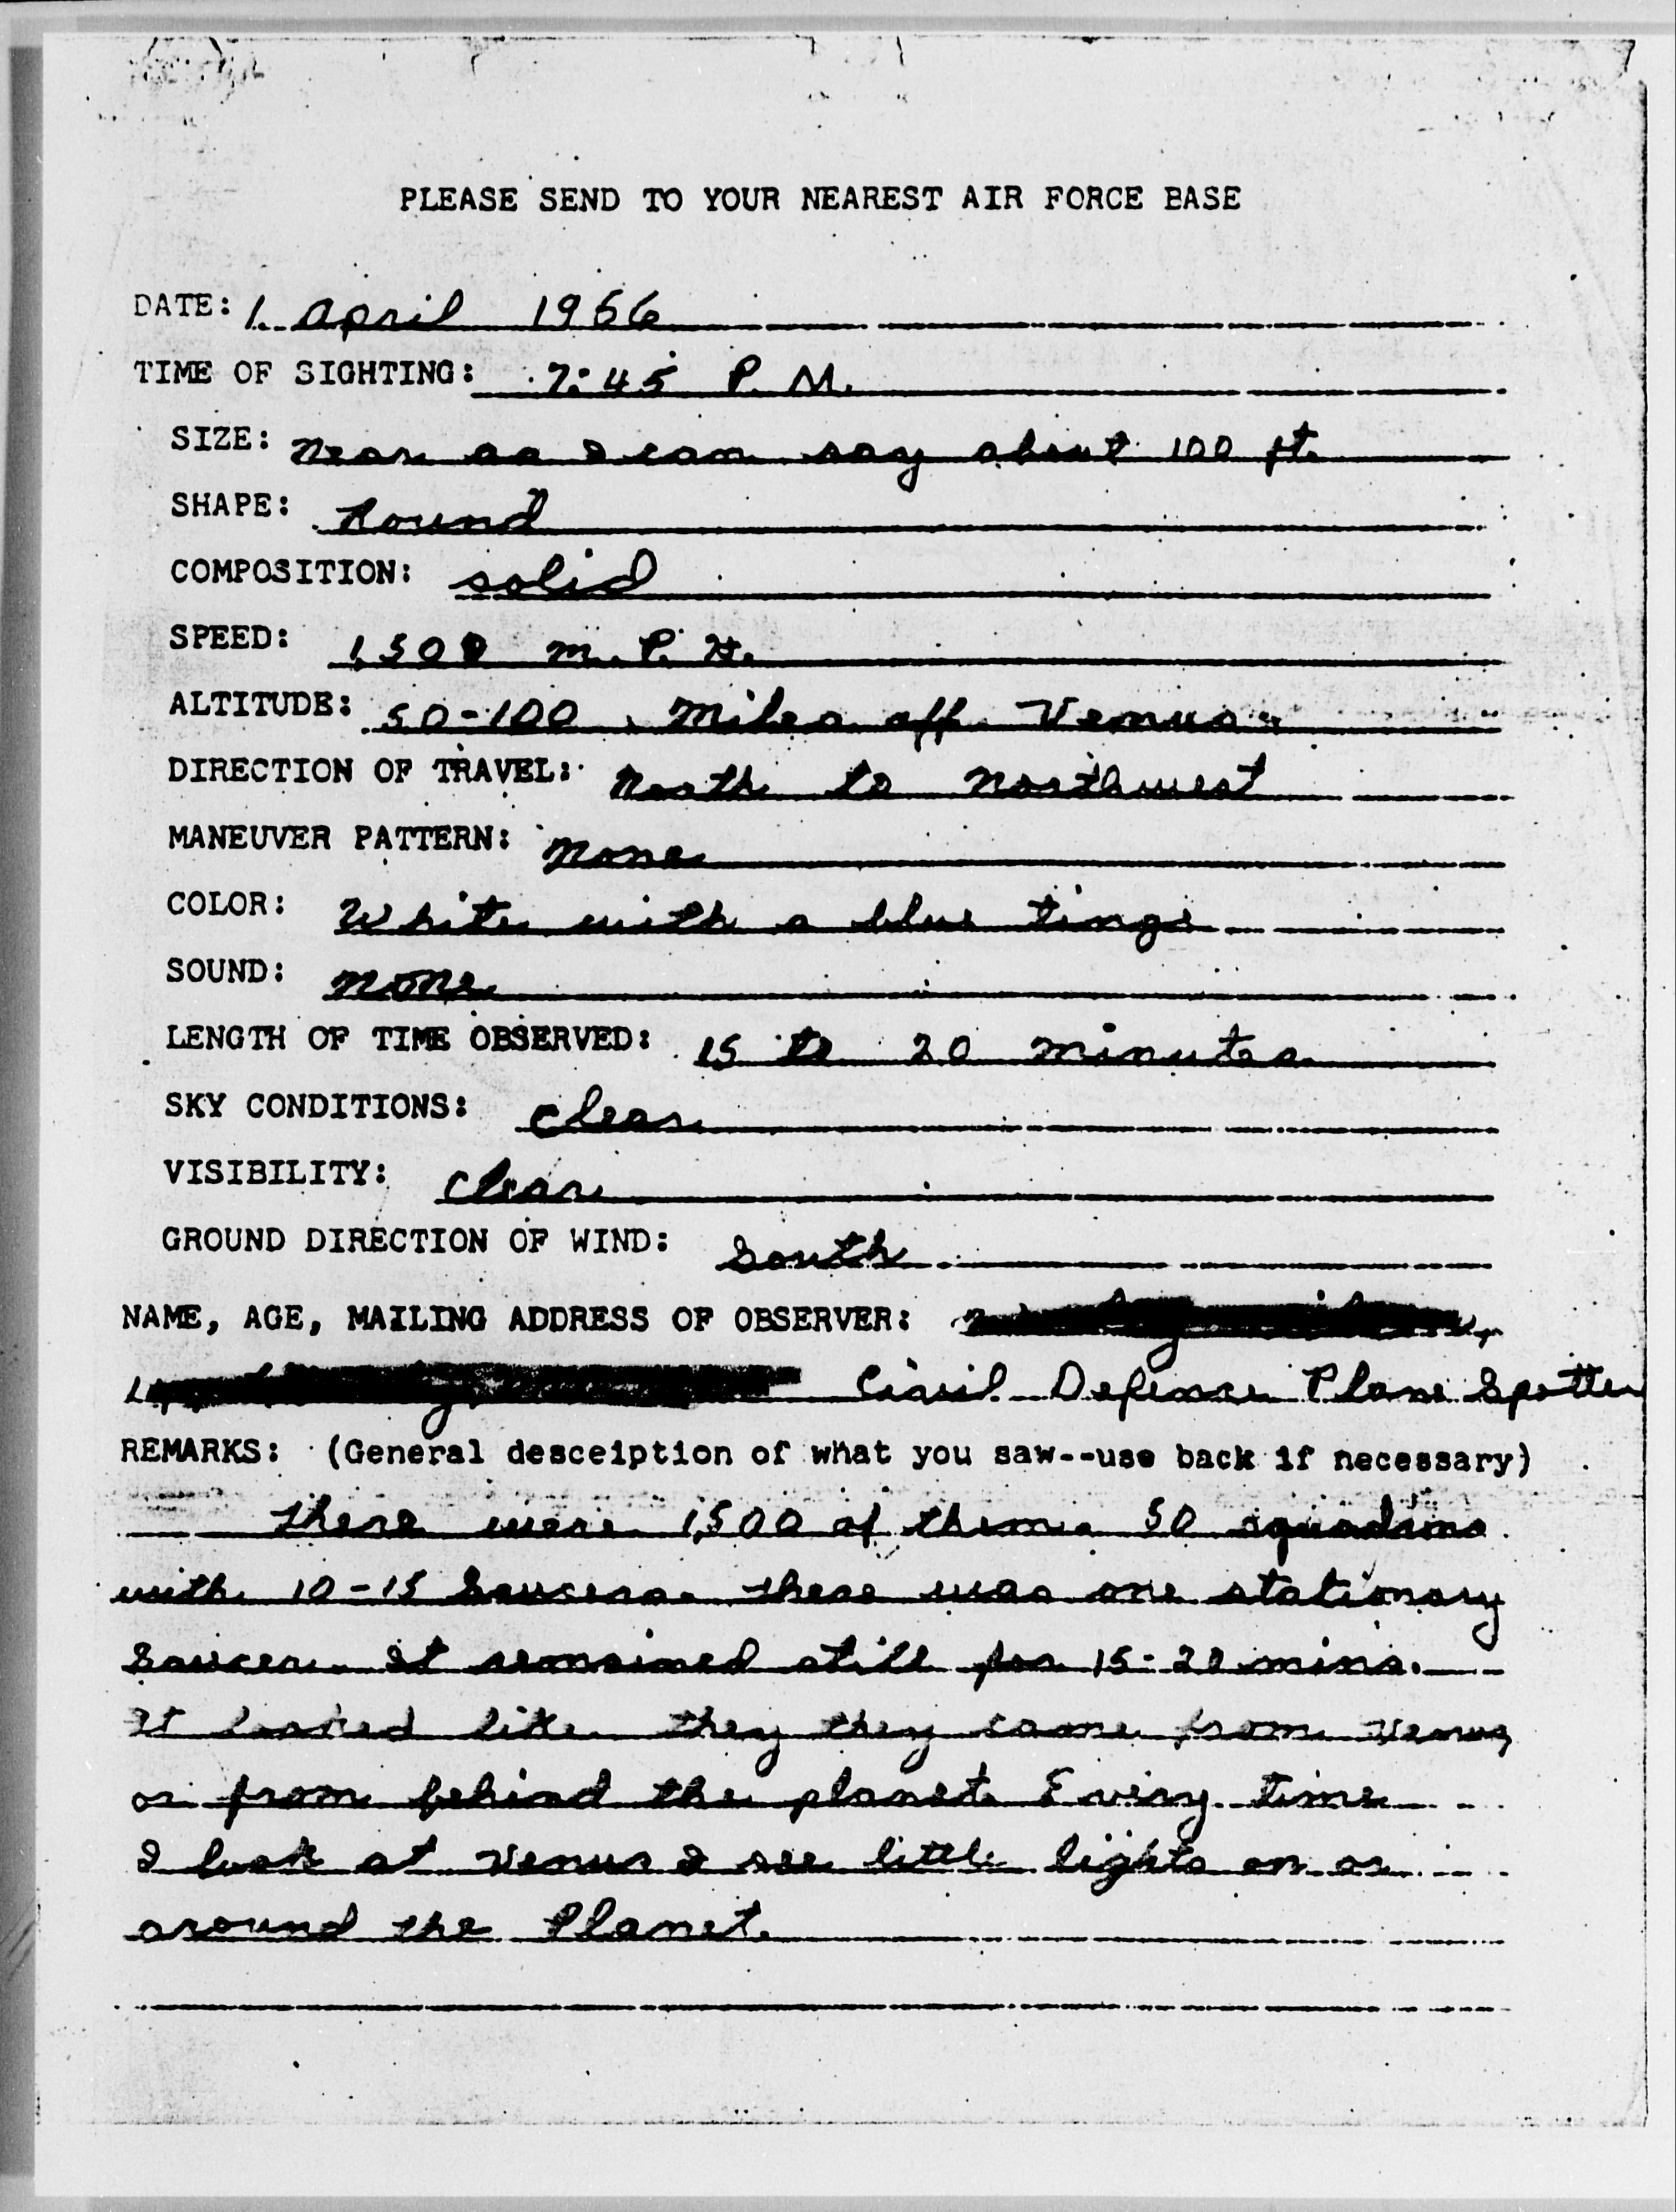 PLEASE SEND TO YOUR NEAREST AIR FORCE BASE
DATE: 1 April 1966
TIME OF SIGHTING: 7:45 P. M.
SIZE: Near as I can say about 100 ft.
SHAPE: Round
COMPOSITION: solid
SPEED: 1,500 m. P. H.
ALTITUDE: 50-100 Miles off Venus.
DIRECTION OF TRAVEL: North to Northwest
MANEUVER PATTERN: None
COLOR: White with a blue tinge
SOUND: None
LENGTH OF TIME OBSERVED: 15 to 20 minutes
SKY CONDITIONS: Clear
VISIBILITY: Clear
GROUND DIRECTION OF WIND: South
NAME, AGE, MAILING ADDRESS OF OBSERVER:
Civil Defense Plane Spotter
REMARKS: (General desceiption of what you saw--use back if necessary)
There were 1,500 of them. 50 squadrons
with 10-15 Saucers. There was one stationary
Saucer. It remained still for 15-20 mins.
It looked like they they came from Venus,
or from behind the planet. Every time
I look at Venus I see little lights on or
around the Planet.